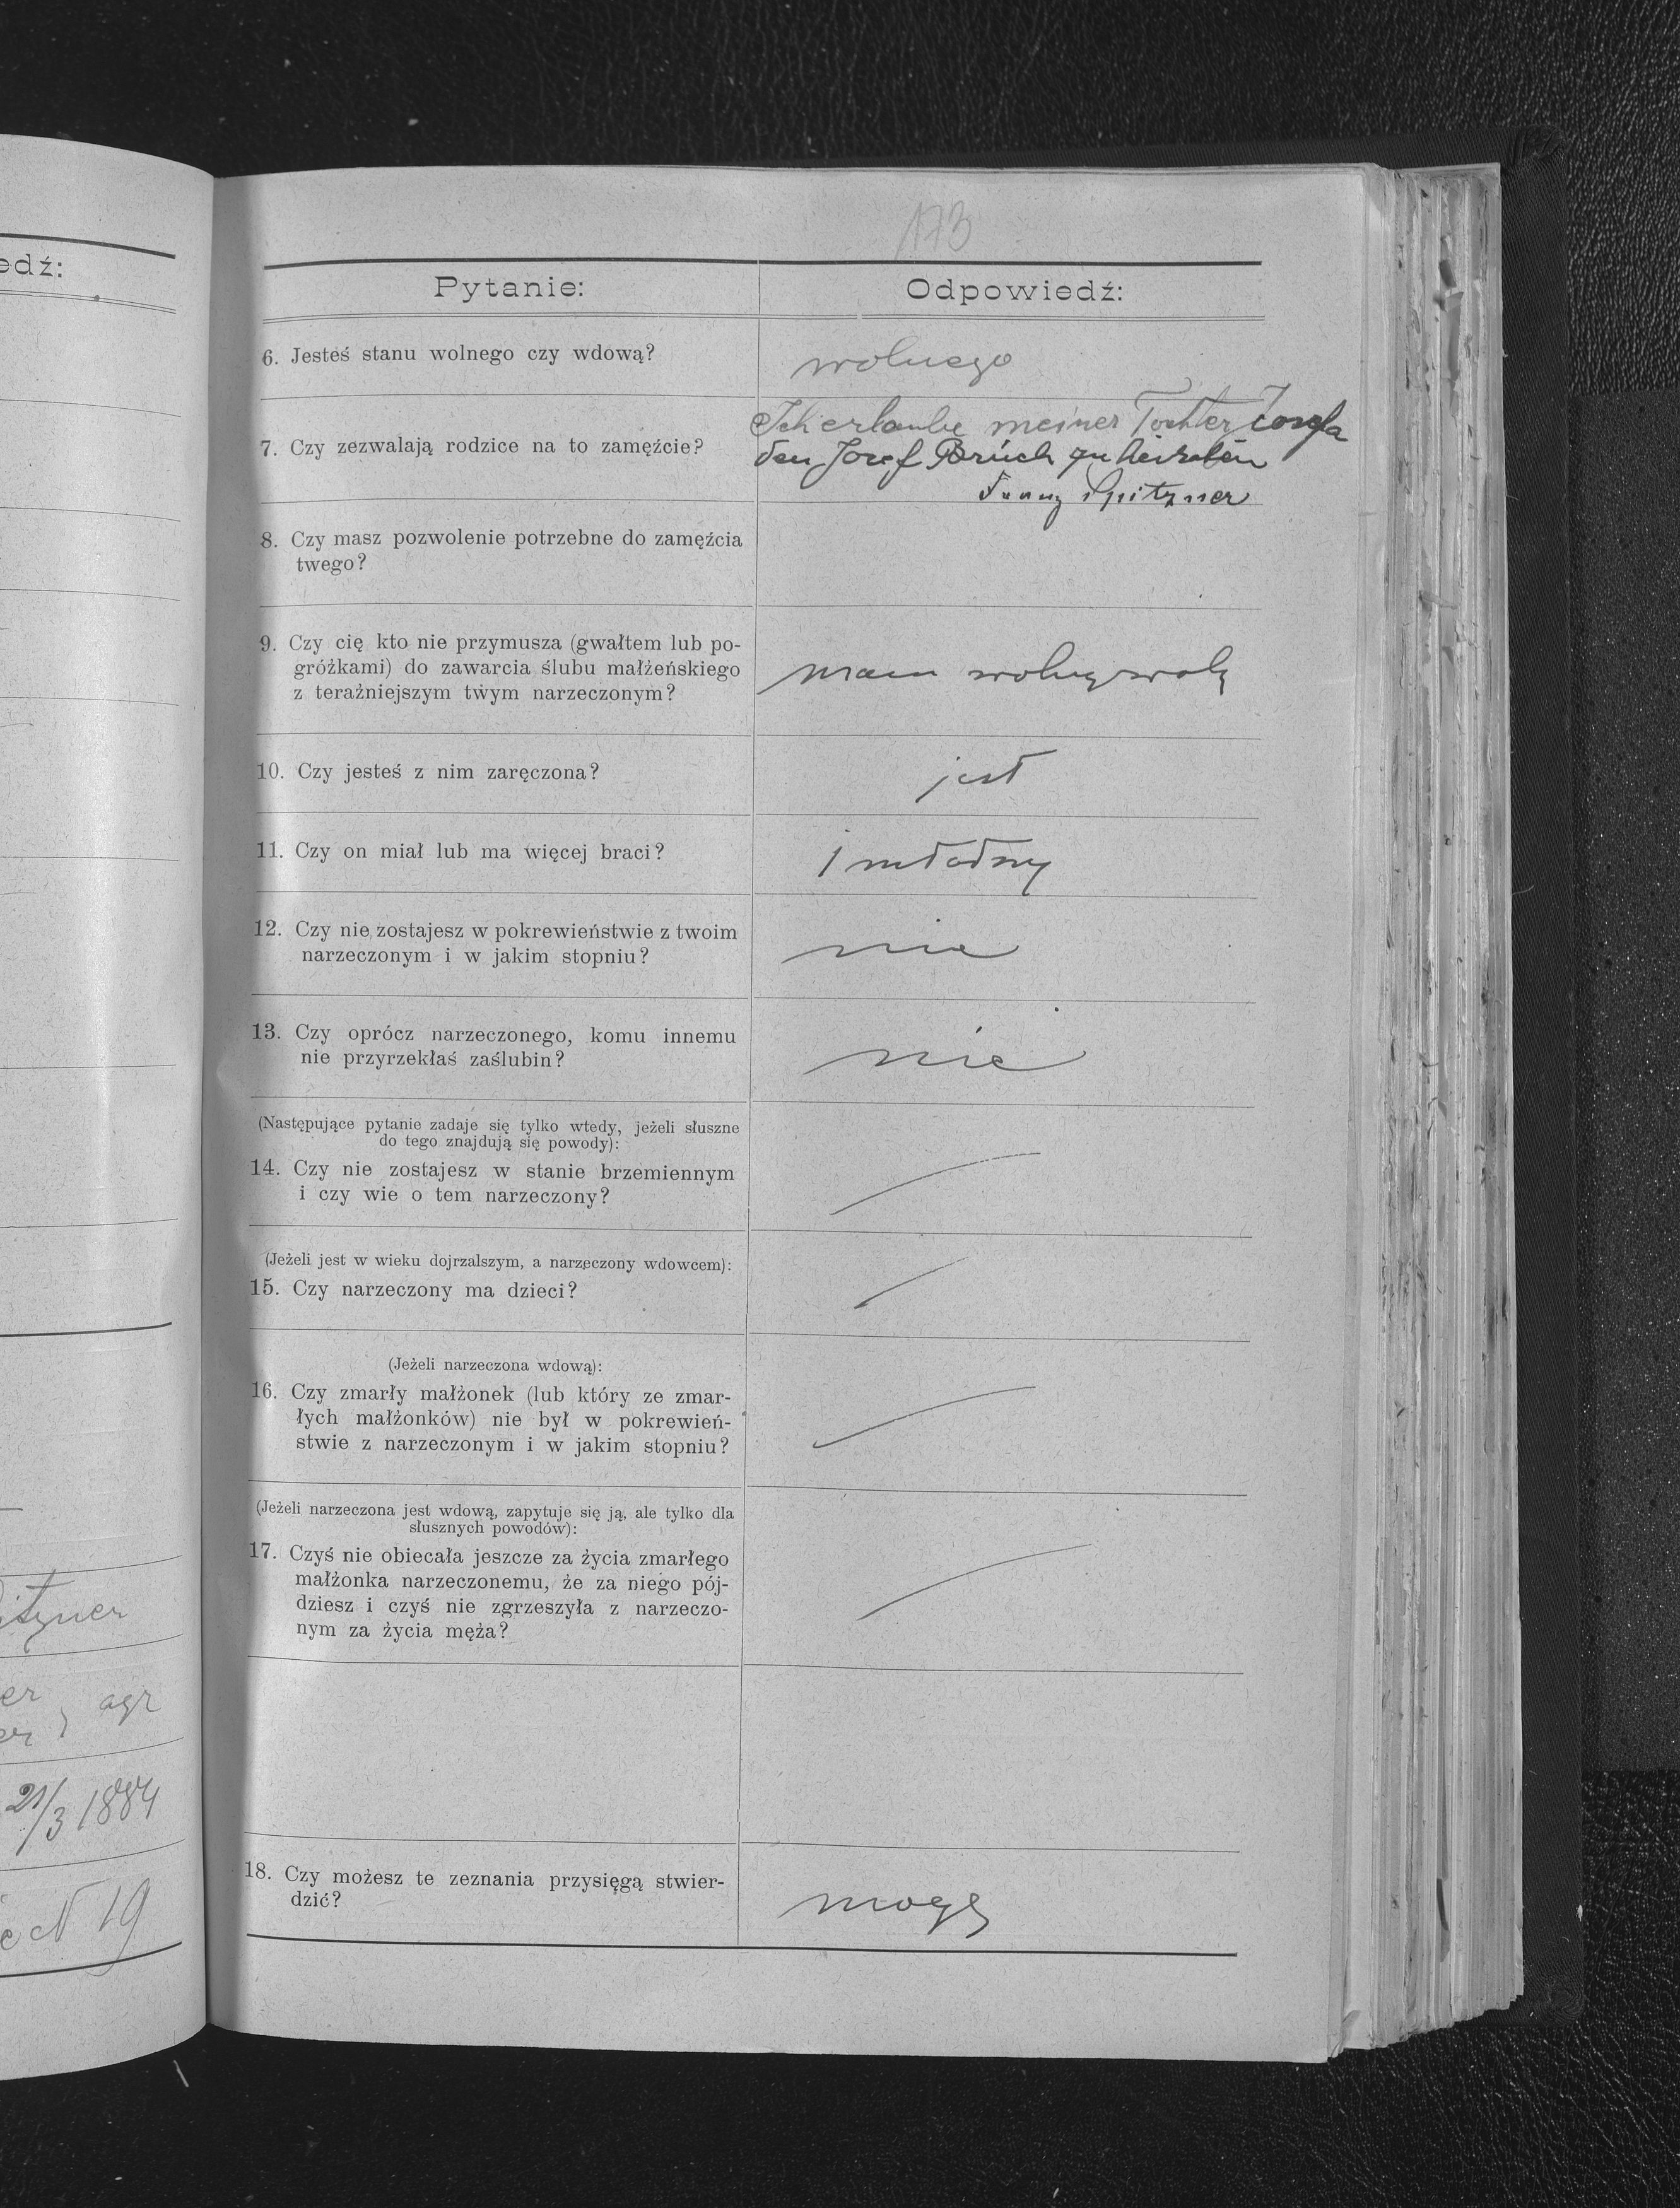 edź:
itzner
er
er } agr
21/3 1884
c N 19
173
Pytanie: Odpowiedź:
6. Jesteś stanu wolnego czy wdową? wolnego
Ich erlaube meiner Tochter
7. Czy zezwalają rodzice na to zamęźcie? den Josef Brüch zu heiraten
Fanny Spitzner
8. Czy masz pozwolenie potrzebne do zamęźcia
twego?
9. Czy cię kto nie przymusza (gwałtem lub po-
gróżkami) do zawarcia ślubu małżeńskiego mam wolną wolę
z teraźniejszym twym narzeczonym?
10. Czy jesteś z nim zaręczona? jest
11. Czy on miał lub ma więcej braci? 1
12. Czy nie zostajesz w pokrewieństwie z twoim nie
narzeczonym i w jakim stopniu?
13. Czy oprócz narzeczonego, komu innemu
nie przyrzekłaś zaślubin? nie
(Następujące pytanie zadaje się tylko wtedy, jeżeli słuszne
do tego znajdują się powody):
14. Czy nie zostajesz w stanie brzemiennym
i czy wie o tem narzeczony?
(Jeżeli jest w wieku dojrzalszym, a narzeczony wdowcem):
15. Czy narzeczony ma dzieci?
(Jeżeli narzeczona wdową):
16. Czy zmarły małżonek (lub który ze zmar-
łych małżonków) nie był w pokrewień-
stwie z narzeczonym i w jakim stopniu?
(Jeżeli narzeczona jest wdową, zapytuje się ją, ale tylko dla
słusznych powodów):
17. Czyś nie obiecała jeszcze za życia zmarłego
małżonka narzeczonemu, że za niego pój-
dziesz i czyś nie zgrzeszyła z narzeczo-
nym za życia męża?
18. Czy możesz te zeznania przysięgą stwier-
dzić? mogę